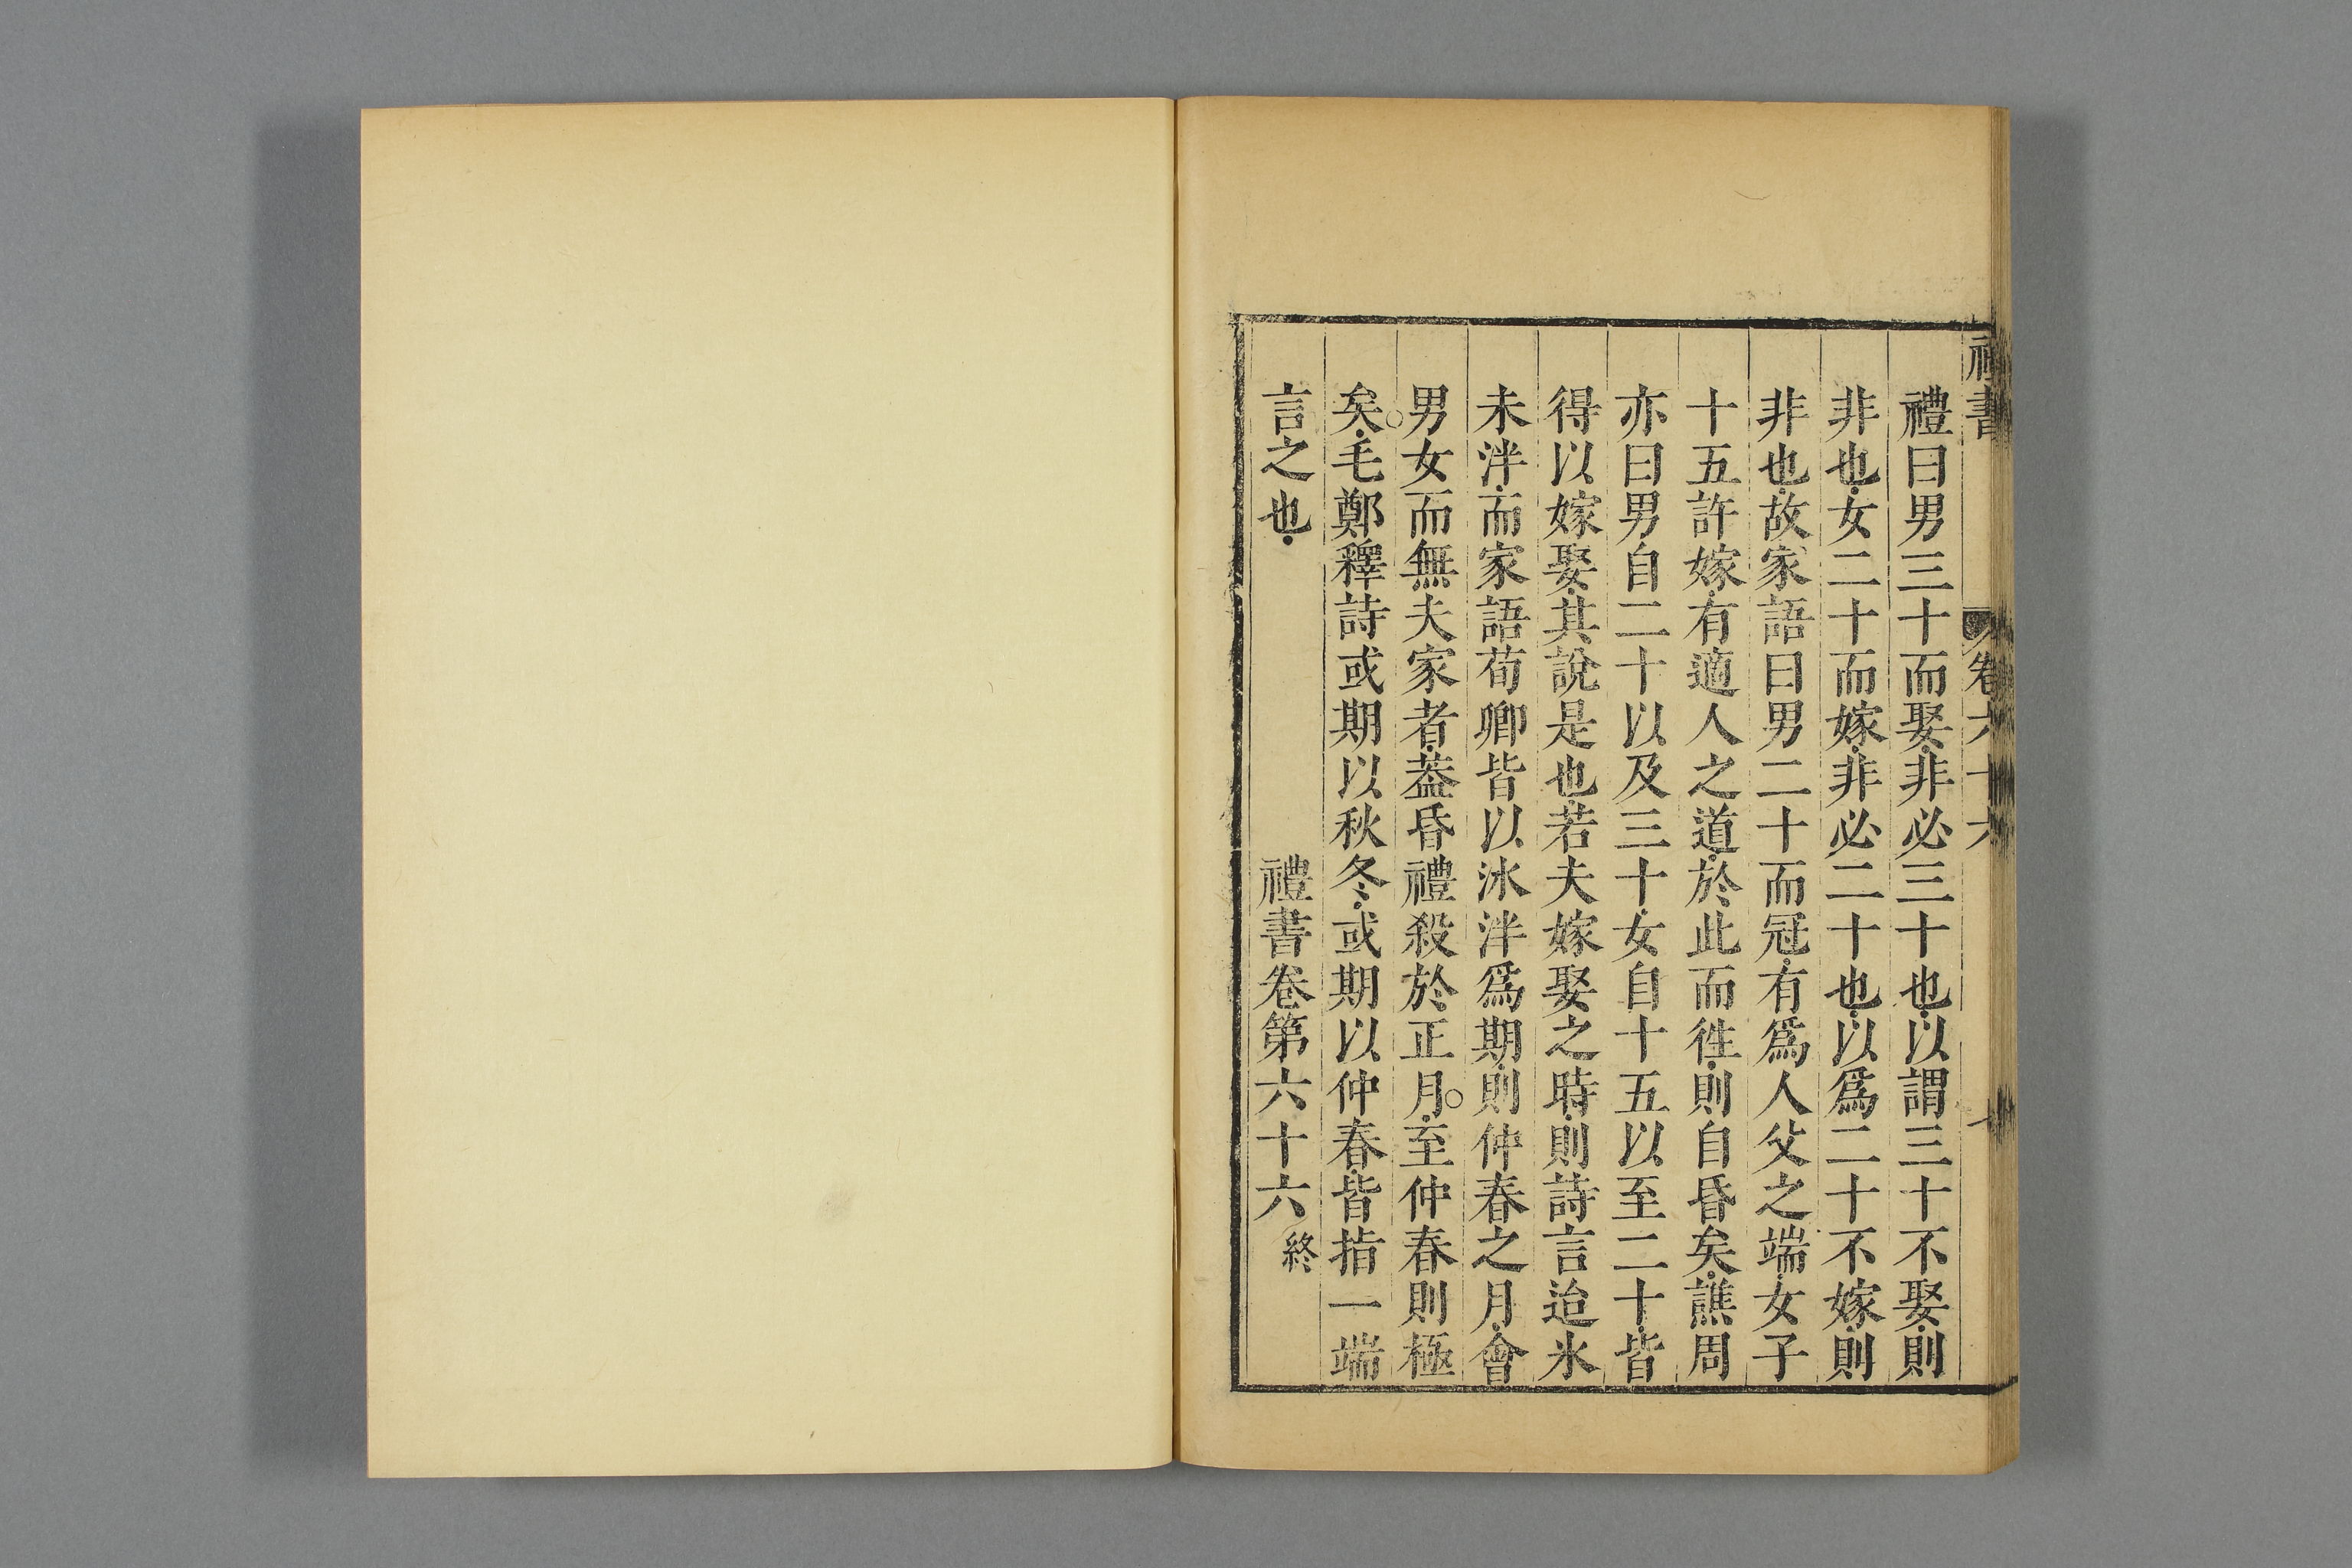 禮書 卷六十六 七
禮曰男三十而娶非必三十也以謂三十不娶則
非也女二十而嫁非必二十也以爲二十不嫁則
非也故家語曰男二十而冠有爲人父之端女子
十五許嫁有適人之道於此而徃則自昏矣譙周
亦曰男自二十以及三十女自十五以至二十皆
得以嫁娶其說是也若夫嫁娶之時則詩言迨氷
未泮而家語荀卿皆以冰泮爲期則仲春之月會
男女而無夫家者葢昏禮殺於正月至仲春則極
矣毛鄭釋詩或期以秋冬或期以仲春皆指一端
言之也 禮書卷第六十六終